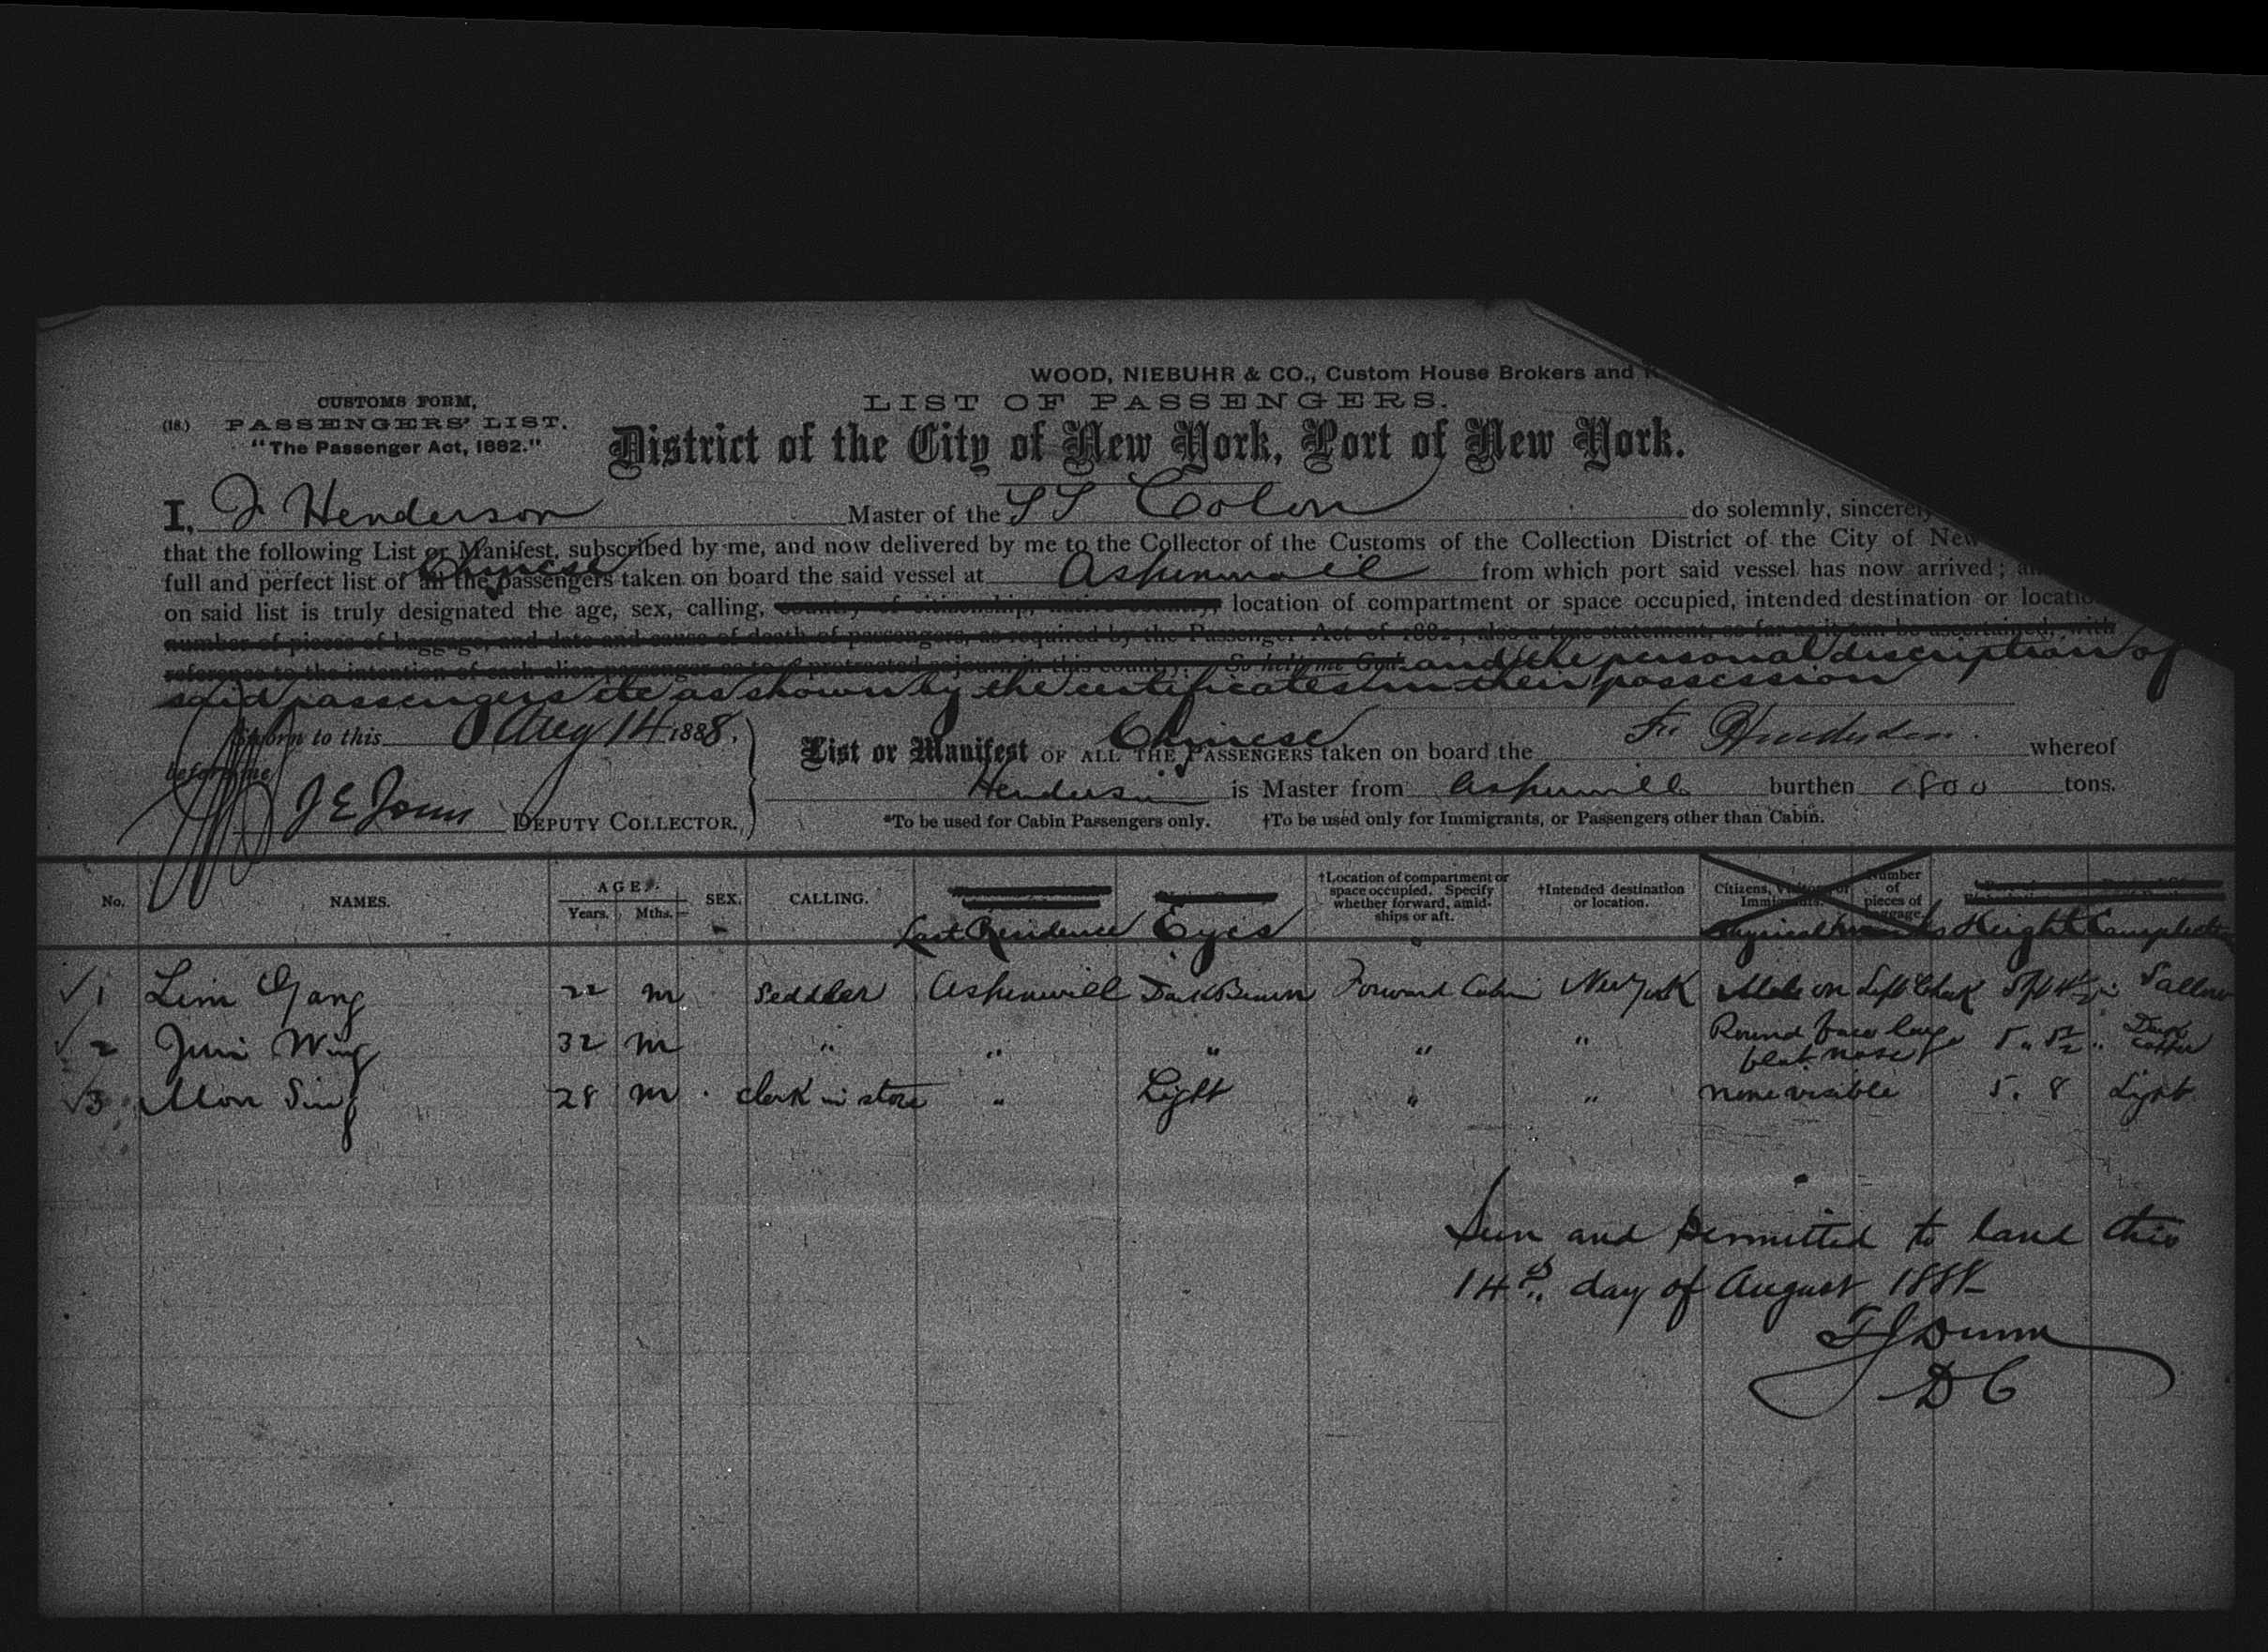 WOOD, NIEBUHR & CO., Custom House Brokers and
CUSTOMS FORM,
LIST OF PASSENGERS.
(18.) PASSENGERS' LIST.
"The Passenger Act, 1882."
District of the City of New York, Port of New York.
I, J Henderson Master of the SS Colon do solemnly, sincerely
that the following List or Manifest, subscribed by me, and now delivered by me to the Collector of the Customs of the Collection District of the City of New
Chinese
full and perfect list of all the passengers taken on board the said vessel at Aspinwall from which port said vessel has now arrived;
on said list is truly designated the age, sex, calling, country of citizenship, native country, location of compartment or space occupied, intended destination or location
number of pieces of baggage, and date and cause of death of passengers, as required by the Passenger Act of 1882; also a true statement, so far as it can be ascertained, with
reference to the intention of each alien passenger as to a protracted sojourn in this country. So help me God. and the personal discription of
said passengers etc as shown by the certificates in their possession
Sworn to this Aug 14 1888.
before me
Chinese
List or Manifest OF ALL THE PASSENGERS taken on board the Henderson whereof
Henderson is Master from Aspinwall burthen 1800 tons.
DEPUTY COLLECTOR.
*To be used for Cabin Passengers only. †To be used only for Immigrants, or Passengers other than Cabin.
No. NAMES. AGE. Years. Mths. SEX. CALLING. Last Residence Eyes †Location of compartment or space occupied. Specify whether forward, amidships or aft. †Intended destination or location. Citizens, Visitors or Immigrants. Number of pieces of baggage. Physical marks Height Complection
1 Lim Gang 22 m Peddler Aspinwall Dark Brown Forward Cabin New York Mole on Left Cheek 5 ft 4½ in Sallow
2 Juri Wing 32 m " " " " " Round face large flat nose 5 " 5½ " Dark
3 Mon Sing 28 m clerk in store " Light " " none visible 5. 8 Light
Seen and permitted to land this
14th day of August 1888
TJ Dunn
D C